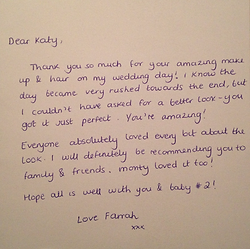 Dear Katy,
Thank you so much for your amazing make
up & hair on my wedding day! I know the
day became very rushed towards the end, but
I couldn't have asked for a better look - you
got it just perfect. You're amazing!
Everyone absolutely loved every bit about the
look. I will definitely be recommending you to
family & friends. Monty loved it too!
Hope all is well with you & baby #2!
Love Farrah
xxx